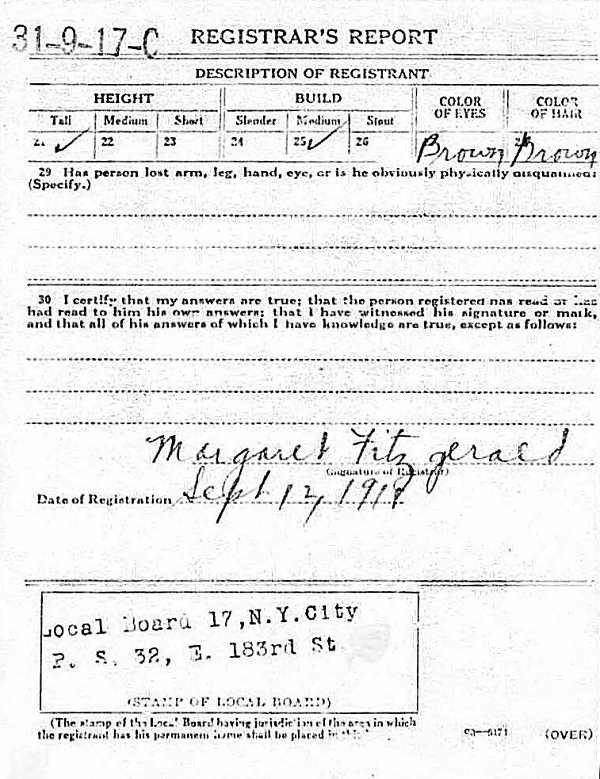 31-9-17-C REGISTRAR'S REPORT
DESCRIPTION OF REGISTRANT
HEIGHT BUILD COLOR OF EYES COLOR OF HAIR
Tall Medium Short Slender Medium Stout
21 ✓ 22 23 24 25 ✓ 26 Brown Brown
29 Has person lost arm, leg, hand, eye, or is he obviously physically disqualified?
(Specify.)
30 I certify that my answers are true; that the person registered has read or has
had read to him his own answers; that I have witnessed his signature or mark,
and that all of his answers of which I have knowledge are true, except as follows:
Margaret Fitzgerald
(Signature of Registrar)
Date of Registration Sept 12, 1918
Local Board 17, N.Y.City
P. S. 32, E. 183rd St
(STAMP OF LOCAL BOARD)
(The stamp of the Local Board having jurisdiction of the area in which
the registrant has his permanent home shall be placed in this
(OVER)